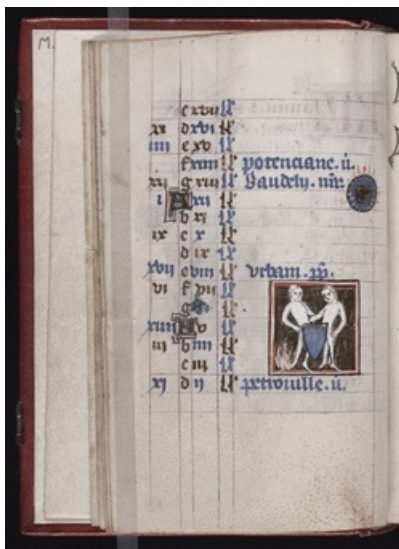 M.
c xvii kl
xi d xvi kl
iiii e xv kl
f xiiii kl potenciane. v.
xii g xiii kl Baudely. mr.
i A xii kl
b xi kl
ix c x kl
d ix kl
xvii e viii kl vrbani. pp.
vi f vii kl
g vi kl
xiiii A v kl
iii b iiii kl
c iii kl
xi d ii kl petronille. v.